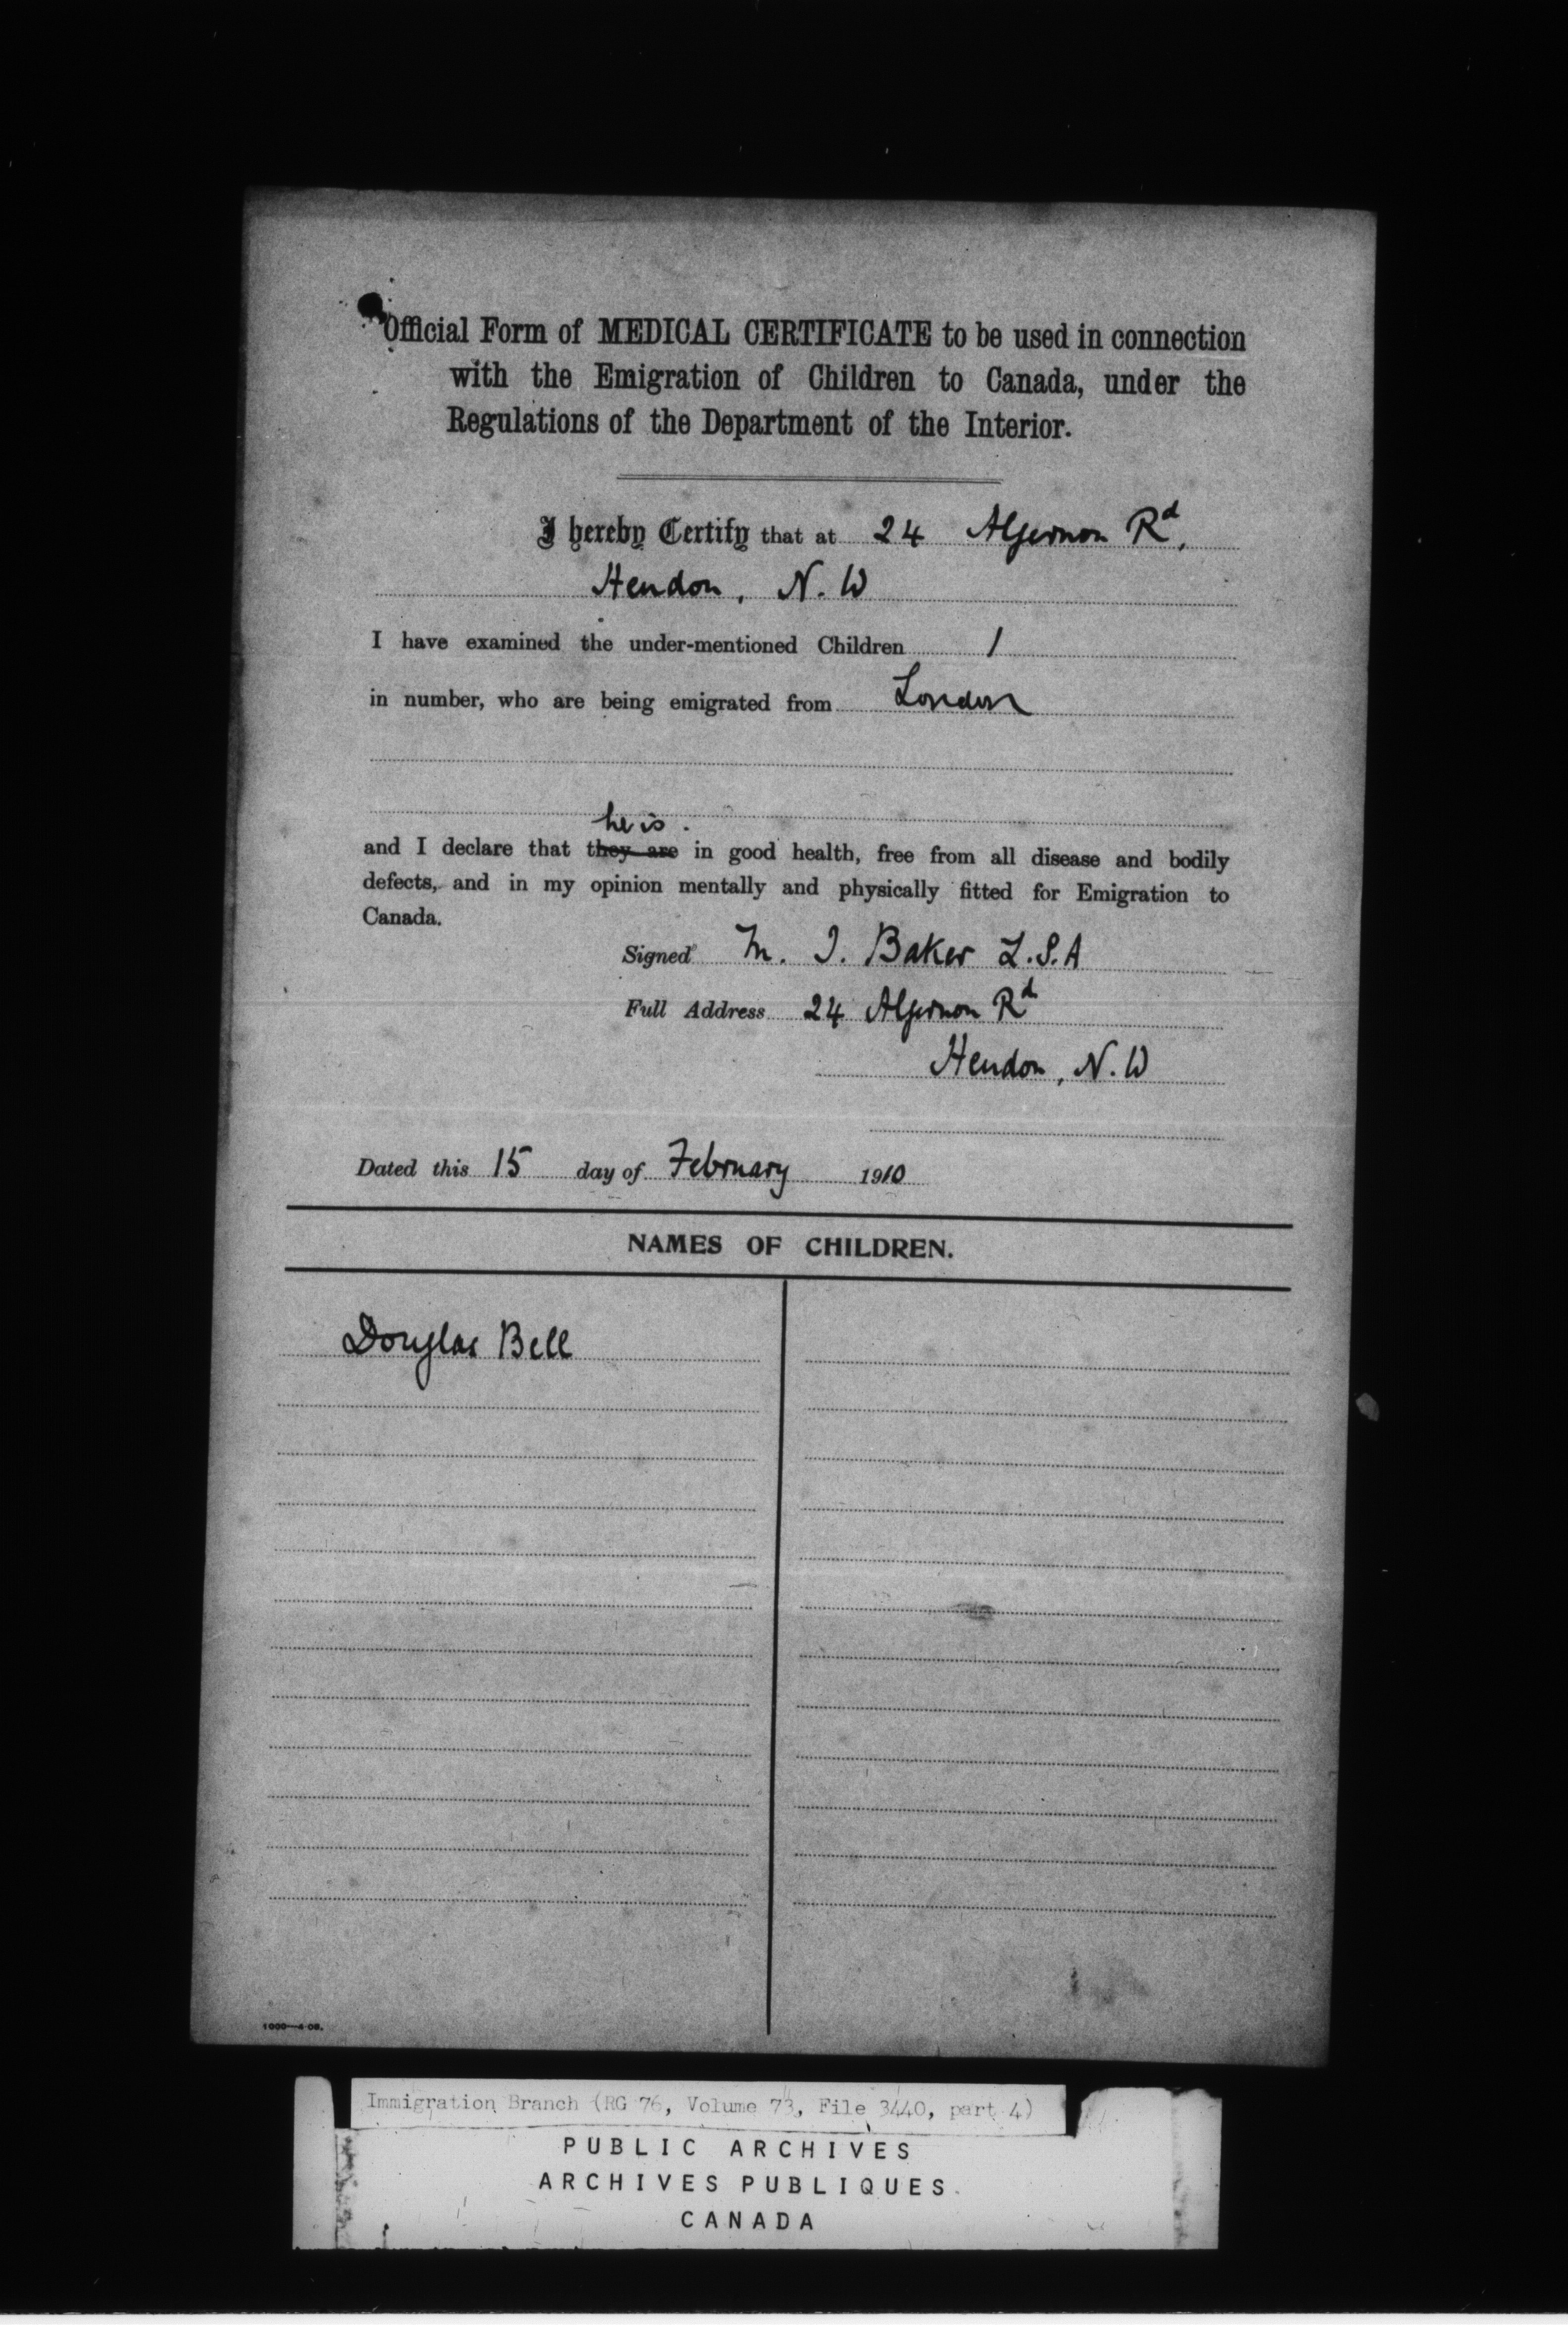 Official Form of MEDICAL CERTIFICATE to be used in connection
with the Emigration of Children to Canada, under the
Regulations of the Department of the Interior.
I hereby Certify that at 24 Algernon Rd,
Hendon, N. W
I have examined the under-mentioned Children 1
in number, who are being emigrated from London
he is.
and I declare that they are in good health, free from all disease and bodily
defects, and in my opinion mentally and physically fitted for Emigration to
Canada.
Signed M. I. Baker L.S.A
Full Address 24 Algernon Rd
Hendon, N. W
Dated this 15 day of February 1910
NAMES OF CHILDREN.
Douglas Bell
1000—4-09.
Immigration Branch (RG 76, Volume 73, File 3440, part 4)
PUBLIC ARCHIVES
ARCHIVES PUBLIQUES
CANADA